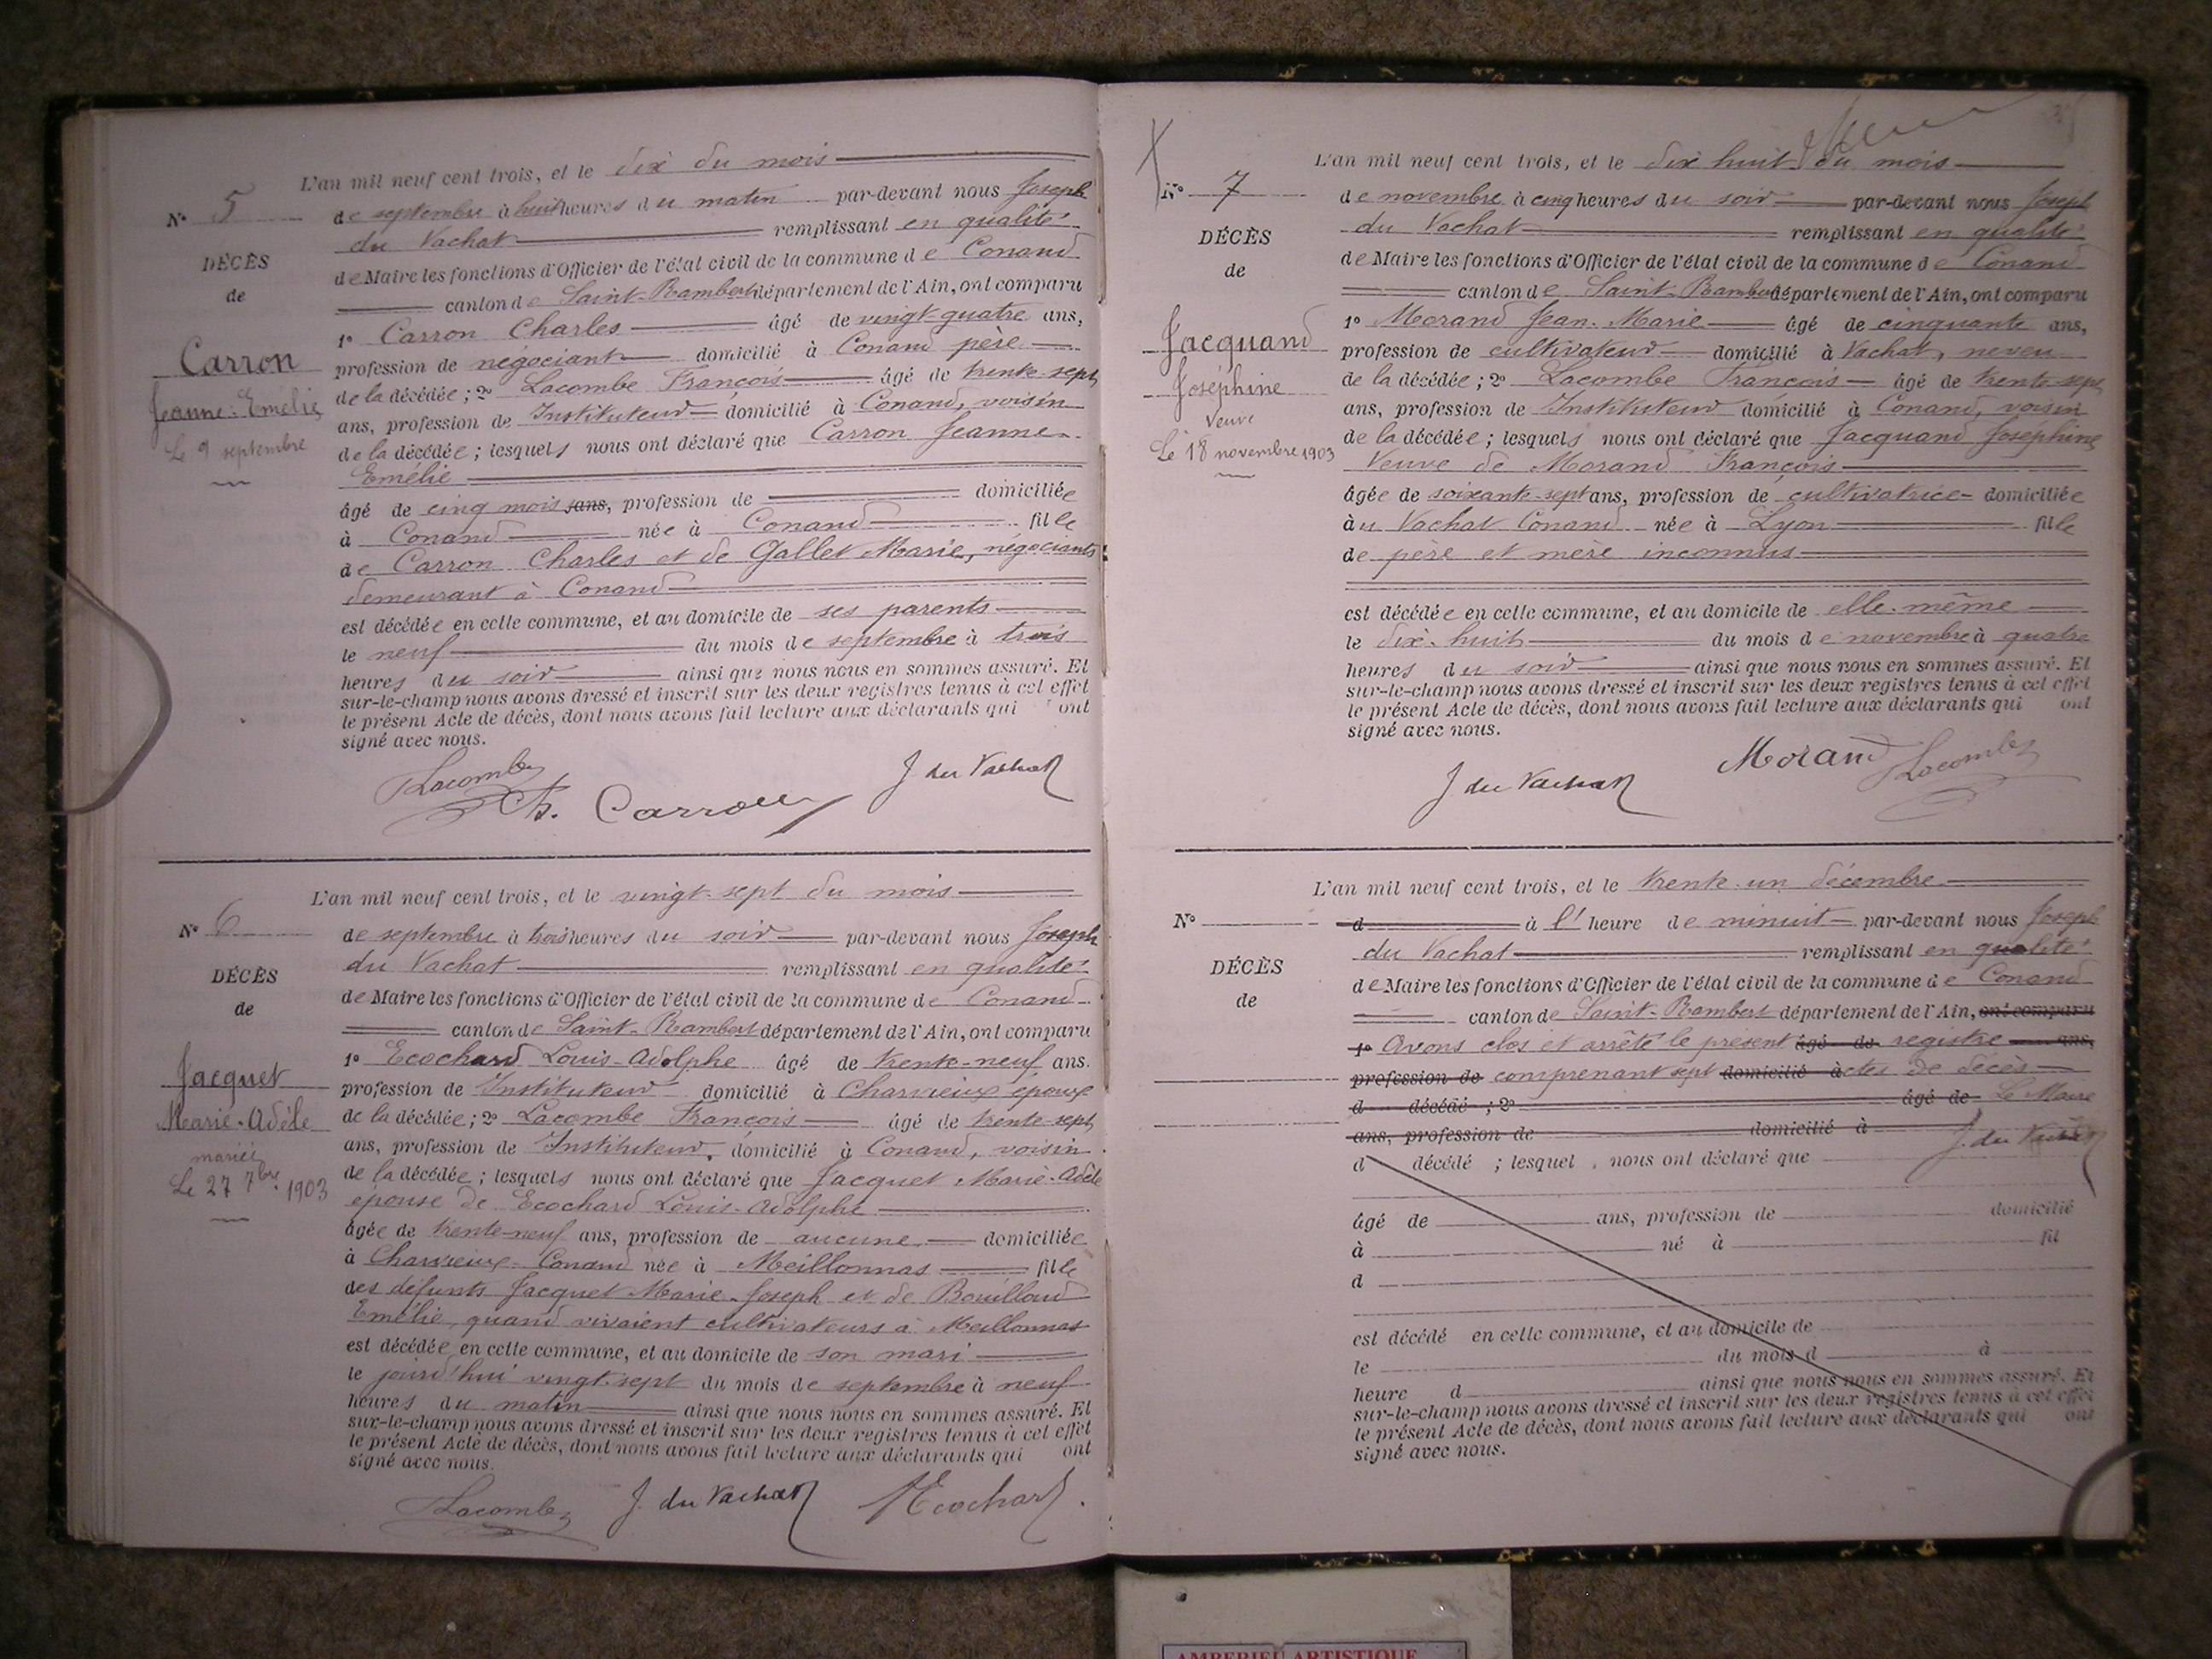 L'an mil neuf cent trois, et le dix du mois
N° 5 de septembre à huit heures du matin par-devant nous Joseph
du Vachat remplissant en qualité
DÉCÈS
de Maire les fonctions d'Officier de l'état civil de la commune de Conand
de
canton de Saint-Rambert département de l'Ain, ont comparu
1° Carron Charles âgé de vingt-quatre ans,
Carron
profession de négociant domicilié à Conand père
Jeanne-Emélie
de la décédée ; 2° Lacombe François âgé de trente-sept
Le 9 septembre
ans, profession de Instituteur domicilié à Conand, voisin
de la décédée ; lesquels nous ont déclaré que Carron Jeanne
Emélie
âgé de cinq mois ans, profession de domiciliée
à Conand née à Conand fille
de Carron Charles et de Gallet Marie, négociants
demeurant à Conand
est décédée en cette commune, et au domicile de ses parents
le neuf du mois de septembre à trois
heures du soir ainsi que nous nous en sommes assuré. Et
sur-le-champ nous avons dressé et inscrit sur les deux registres tenus à cet effet
le présent Acte de décès, dont nous avons fait lecture aux déclarants qui ont
signé avec nous.
Lacombe Ch. Carron J du Vachat
L'an mil neuf cent trois, et le vingt-sept du mois
N° 6 de septembre à trois heures du soir par-devant nous Joseph
du Vachat remplissant en qualité
DÉCÈS
de Maire les fonctions d'Officier de l'état civil de la commune de Conand
de
canton de Saint-Rambert département de l'Ain, ont comparu
1° Ecochard Louis-Adolphe âgé de trente-neuf ans.
Jacquet
profession de Instituteur domicilié à Charvieux époux
Marie-Adèle
de la décédée ; 2° Lacombe François âgé de trente-sept
mariée
ans, profession de Instituteur, domicilié à Conand, voisin
Le 27 7bre 1903
de la décédée ; lesquels nous ont déclaré que Jacquet Marie-Adèle
épouse de Ecochard Louis-Adolphe
âgée de trente-neuf ans, profession de aucune domiciliée
à Charvieux-Conand née à Meillonnas fille
des défunts Jacquet Marie-Joseph et de Bouilloud
Emélie, quand vivaient cultivateurs à Meillonnas
est décédée en cette commune, et au domicile de son mari
le jourd'hui vingt-sept du mois de septembre à neuf
heures du matin ainsi que nous nous en sommes assuré. Et
sur-le-champ nous avons dressé et inscrit sur les deux registres tenus à cet effet
le présent Acte de décès, dont nous avons fait lecture aux déclarants qui ont
signé avec nous.
Lacombe J. du Vachat Ecochard
L'an mil neuf cent trois, et le dix huit du mois
N° 7 de novembre à cinq heures du soir par-devant nous Joseph
du Vachat remplissant en qualité
DÉCÈS
de Maire les fonctions d'Officier de l'état civil de la commune de Conand
de
canton de Saint-Rambert département de l'Ain, ont comparu
1° Morand Jean-Marie âgé de cinquante ans,
Jacquand
profession de cultivateur domicilié à Vachat, neveu
Joséphine
de la décédée ; 2° Lacombe François âgé de trente-sept
Veuve
ans, profession de Instituteur domicilié à Conand, voisin
Le 18 novembre 1903
de la décédée ; lesquels nous ont déclaré que Jacquand Joséphine
Veuve de Morand François
âgée de soixante-sept ans, profession de cultivatrice domiciliée
à u Vachat Conand née à Lyon fille
de père et mère inconnus
est décédée en cette commune, et au domicile de elle-même
le dix-huit du mois de novembre à quatre
heures du soir ainsi que nous nous en sommes assuré. Et
sur-le-champ nous avons dressé et inscrit sur les deux registres tenus à cet effet
le présent Acte de décès, dont nous avons fait lecture aux déclarants qui ont
signé avec nous.
J du Vachat Morand Lacombe
L'an mil neuf cent trois, et le trente-un décembre
N° d à l'heure de minuit par-devant nous Joseph
du Vachat remplissant en qualité
DÉCÈS
de Maire les fonctions d'Officier de l'état civil de la commune de Conand
de
canton de Saint-Rambert département de l'Ain, ont comparu
1° Avons clos et arrêté le présent âgé de registre ans,
profession de comprenant sept domicilié à actes de décès
d décédé ; 2° âgé de Le Maire
ans, profession de domicilié à J. du Vachat
d décédé ; lesquel nous ont déclaré que
âgé de ans, profession de domicilié
à né à fil
d
est décédé en cette commune, et au domicile de
le du mois d à
heure d ainsi que nous nous en sommes assuré. Et
sur-le-champ nous avons dressé et inscrit sur les deux registres tenus à cet effet
le présent Acte de décès, dont nous avons fait lecture aux déclarants qui ont
signé avec nous.
AMBERIEU ARTISTIQUE